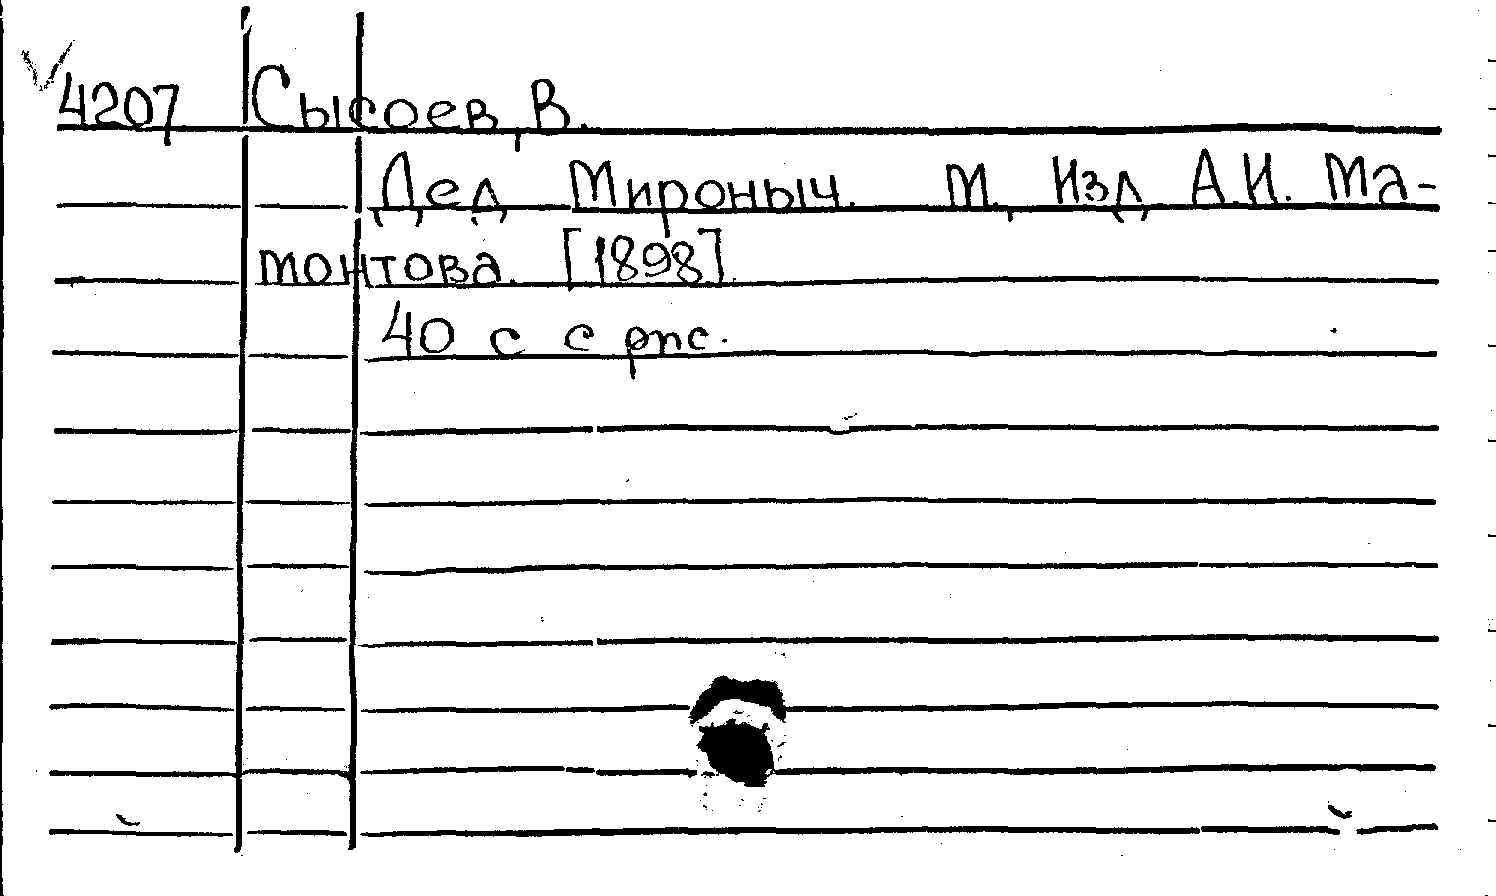 4207 Сысоев, В.
Дед Мироныч. М., Изд. А.И. Ма-
монтова. [1898].
40 с. с рис.